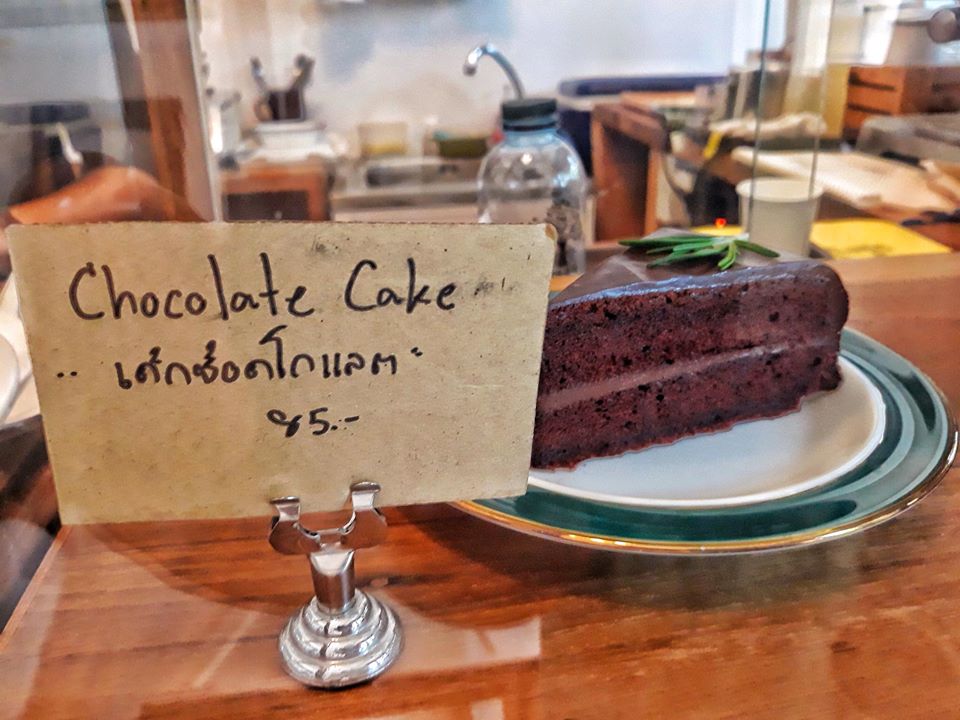 Chocolate Cake
" เค้กช็อคโกแลต "
85.-